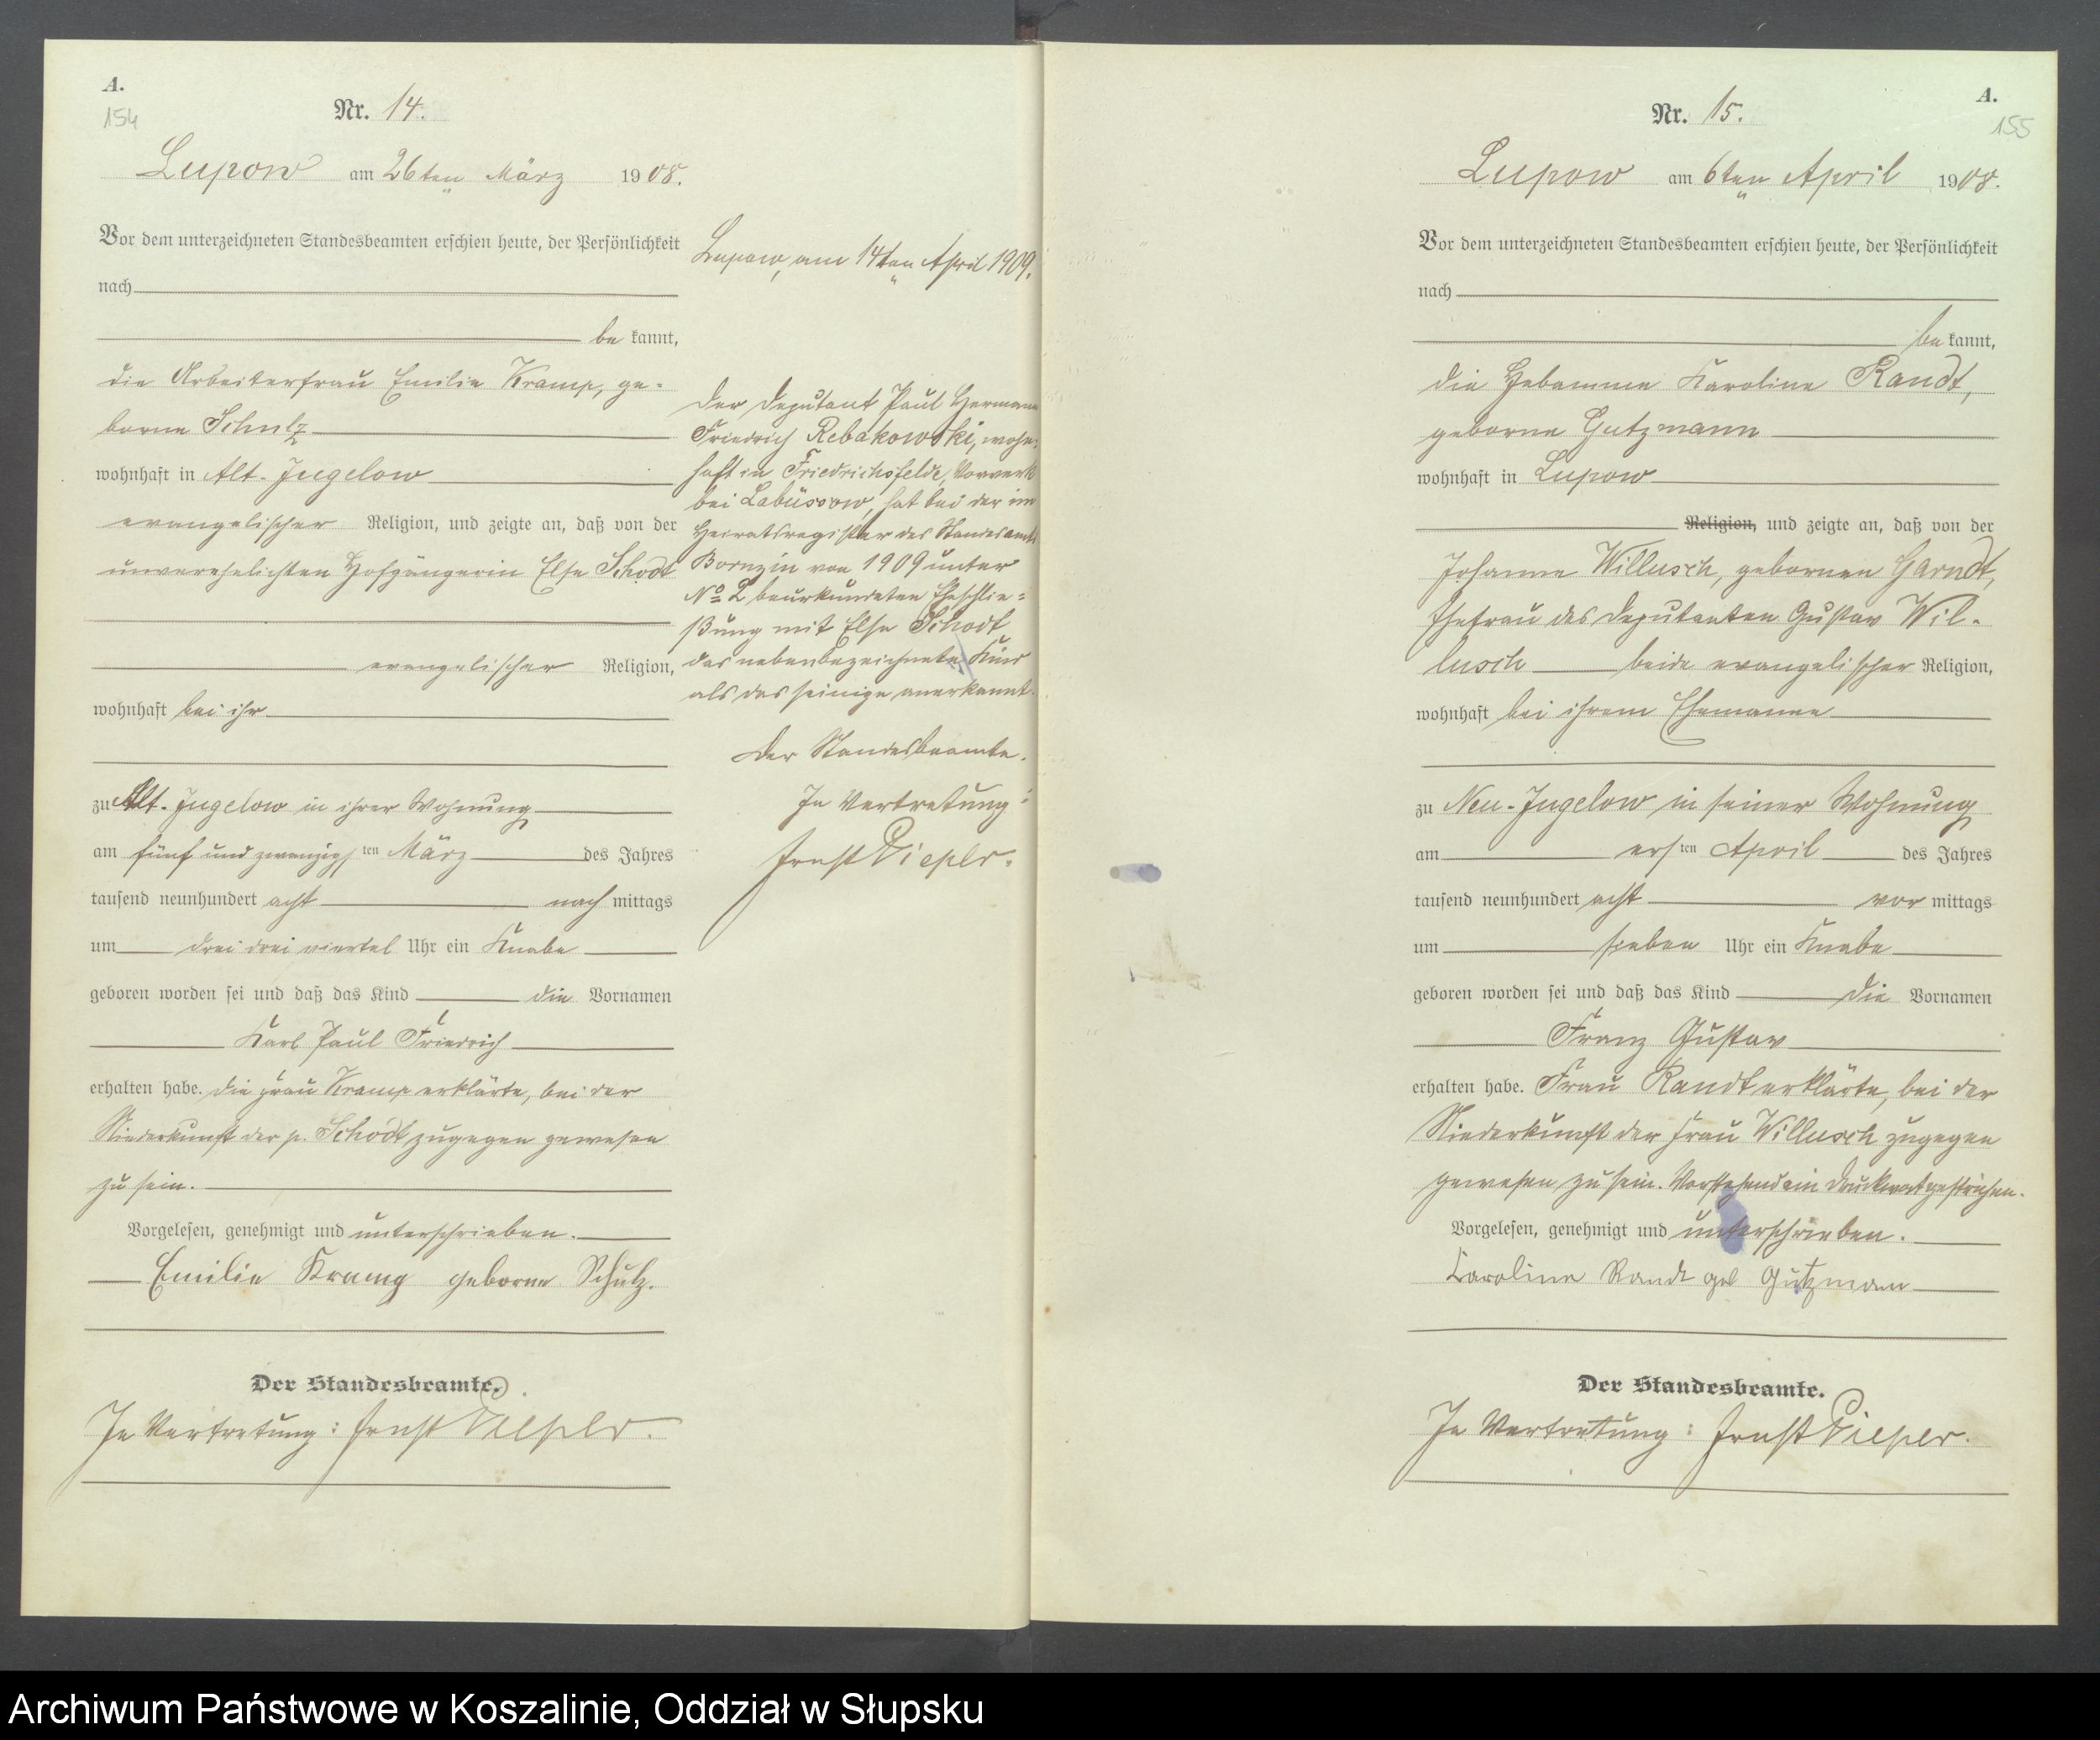 A.
154
Nr. 14.
Lupow am 26ten März 1908.
Vor dem unterzeichneten Standesbeamten erschien heute, der Persönlichkeit
nach
be kannt,
die Arbeiterfrau Emilie Kramp, ge-
borne Schulz
wohnhaft in Alt-Jugelow
evangelischer Religion, und zeigte an, daß von der
unverehelichten Hofgängerin Else Schodt
evangelischer Religion,
wohnhaft bei ihr
zu Alt-Jugelow in ihrer Wohnung
am fünf und zwanzigsten März des Jahres
tausend neunhundert acht nach mittags
um drei drei viertel Uhr ein Knabe
geboren worden sei und daß das Kind die Vornamen
Karl Paul Friedrich
erhalten habe. Die Frau Kramp erklärte, bei der
Niederkunft der p. Schodt zugegen gewesen
zu sein.
Vorgelesen, genehmigt und unterschrieben.
Emilie Kramp geborne Schulz.
Der Standesbeamte.
In Vertretung: Ernst Pieper.
Lupow, am 14ten April 1909.
Der Deputant Paul Hermann
Friedrich Rebakowski, wohn-
haft in Friedrichsfelde, Vorwerk
bei Labüssow, hat bei der im
Heiratsregister des Standesamts
Bornzin von 1909 unter
No 2 beurkundeten Eheschlie-
ßung mit Else Schodt
das nebenbezeichnete Kind
als das seinige anerkannt.
Der Standesbeamte.
In Vertretung:
Ernst Pieper.
A.
155
Nr. 15.
Lupow am 6ten April 1908.
Vor dem unterzeichneten Standesbeamten erschien heute, der Persönlichkeit
nach
be kannt,
die Hebamme Karoline Randt,
geborne Gutzmann
wohnhaft in Lupow
Religion, und zeigte an, daß von der
Johanne Willusch, gebornen Garndt,
Ehefrau des Deputanten Gustav Wil-
lusch beide evangelischer Religion,
wohnhaft bei ihrem Ehemanne
zu Neu-Jugelow in seiner Wohnung
am ersten April des Jahres
tausend neunhundert acht vor mittags
um sieben Uhr ein Knabe
geboren worden sei und daß das Kind die Vornamen
Franz Gustav
erhalten habe. Frau Randt erklärte, bei der
Niederkunft der Frau Willusch zugegen
gewesen zu sein. Vorstehend ein Druckwort gestrichen.
Vorgelesen, genehmigt und unterschrieben.
Caroline Randt geb Gutzmann
Der Standesbeamte.
In Vertretung: Ernst Pieper.
Archiwum Państwowe w Koszalinie, Oddział w Słupsku